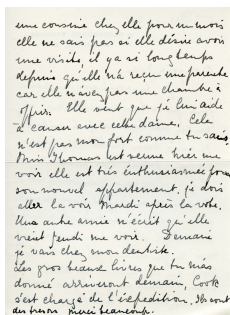 une cousine chez elle pour un mois
elle ne sais pas si elle désire avoir
une visite, il y a si longtemps
depuis qu'elle n'a reçu une parente
car elle n'avez pas une chambre à
offrir. Elle veut que je lui aide
à causer avec cette dame. Cela
n'est pas mon fort comme tu sais.
Miss Thomas est venue hier me
voir elle est très enthusiasmée pour
son nouvel appartement. je dois
aller la voir Mardi après la vote.
Une autre amie m'écrit qu'elle
vient jeudi me voir. Demain
je vais chez mon dentiste.
Les gros beaux livres que tu m'as
donné arriveront demain, Cook
s'est chargé de l'expédition. Ils sont
des tresors merci beaucoup.